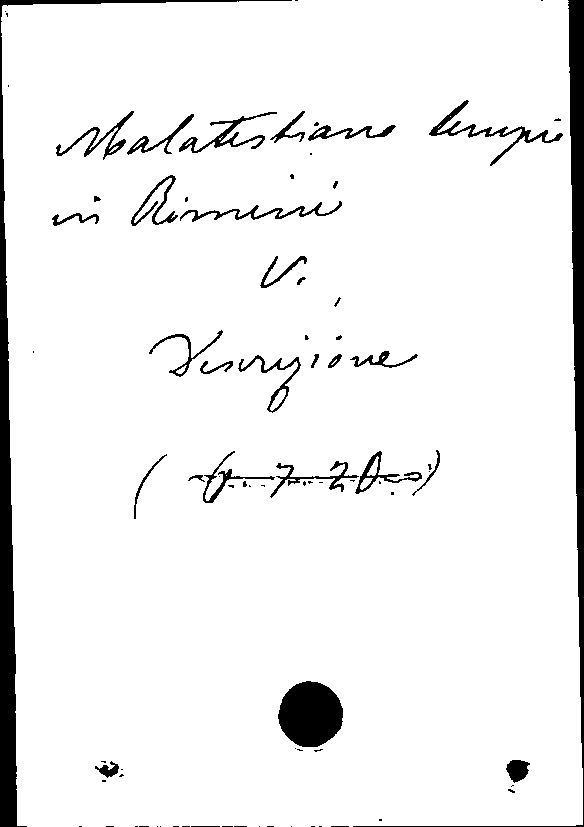 Malatestiano tempio
in Rimini
V.
Descrizione